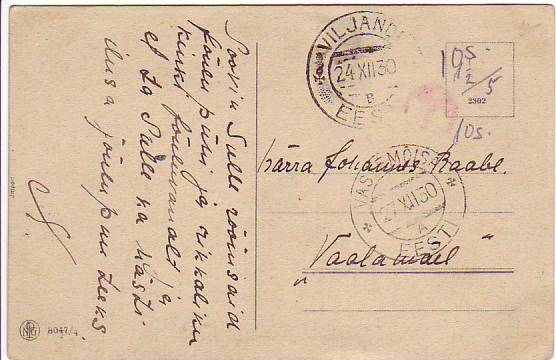 Soovin Sulle rõõmsaid
jõulu pühi ja rikkalikku
kinki jõuluvanalt ja
et ta Sulle ka hästi
ilusa jõulupuu tooks.
VILJANDI
24 XII 30
B
EESTI
10s.
12/5
2302
10s.
härra Johannes Raabe.
VASTEMÕISA
27 XII 30
A
EESTI
„Vaalamäe"
8047/4